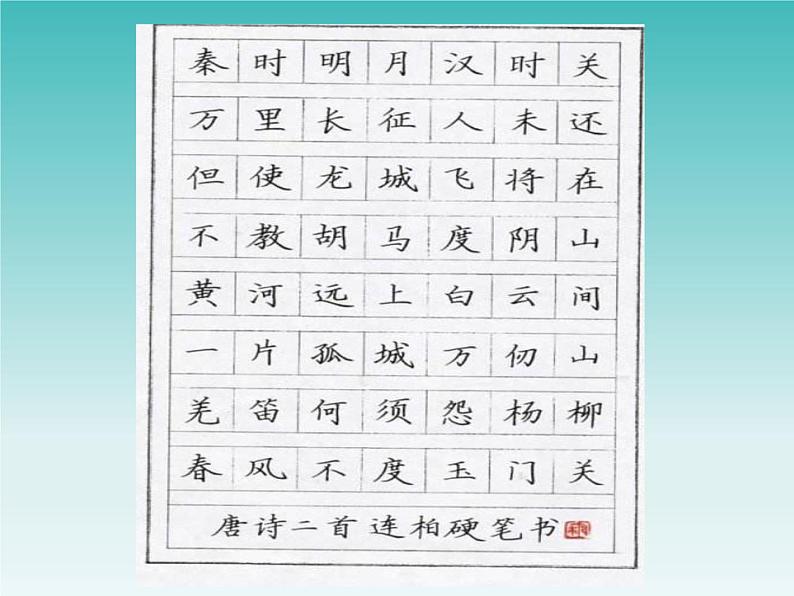 秦时明月汉时关
万里长征人未还
但使龙城飞将在
不教胡马度阴山
黄河远上白云间
一片孤城万仞山
羌笛何须怨杨柳
春风不度玉门关
唐诗二首 连柏硬笔书